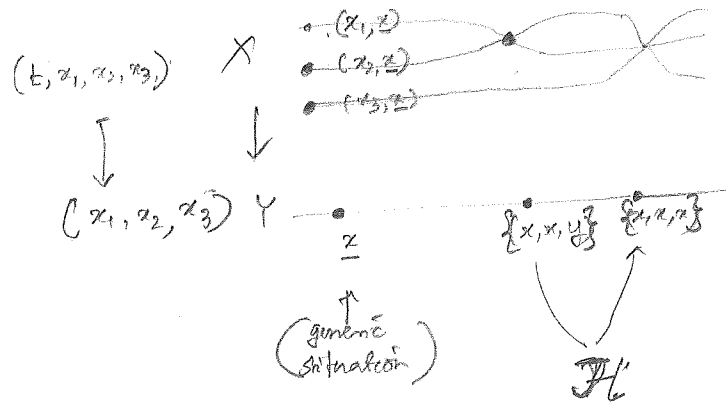 (x₁, x)
(t, x₁, x₂, x₃,) X (x₂, x)
(x₃, x)
(x₁, x₂, x₃) Y
x {x, x, y} {x, x, x}
(generic
situation)
H